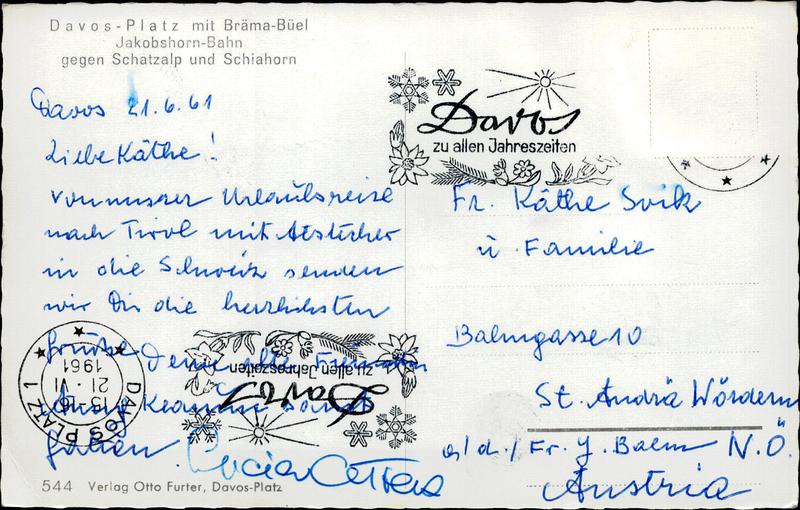 Davos-Platz mit Bräma-Büel
Jakobshorn-Bahn
gegen Schatzalp und Schiahorn
Davos 21.6.61
Liebe Käthe!
Von unser Urlaubsreise
nach Tirol mit Abstecher
in die Schweiz senden
wir Dir die herzlichsten
Grüße Deine alte
samt
544 Verlag Otto Furter, Davos-Platz
Davos
zu allen Jahreszeiten
Fr. Käthe Svik
u. Familie
Balmgasse 10
St. Andrä Wördern
a/d./Fr. J. Balm N.Ö.
Austria
Davos
zu allen Jahreszeiten
DAVOS PLATZ 1
21.VI
1961